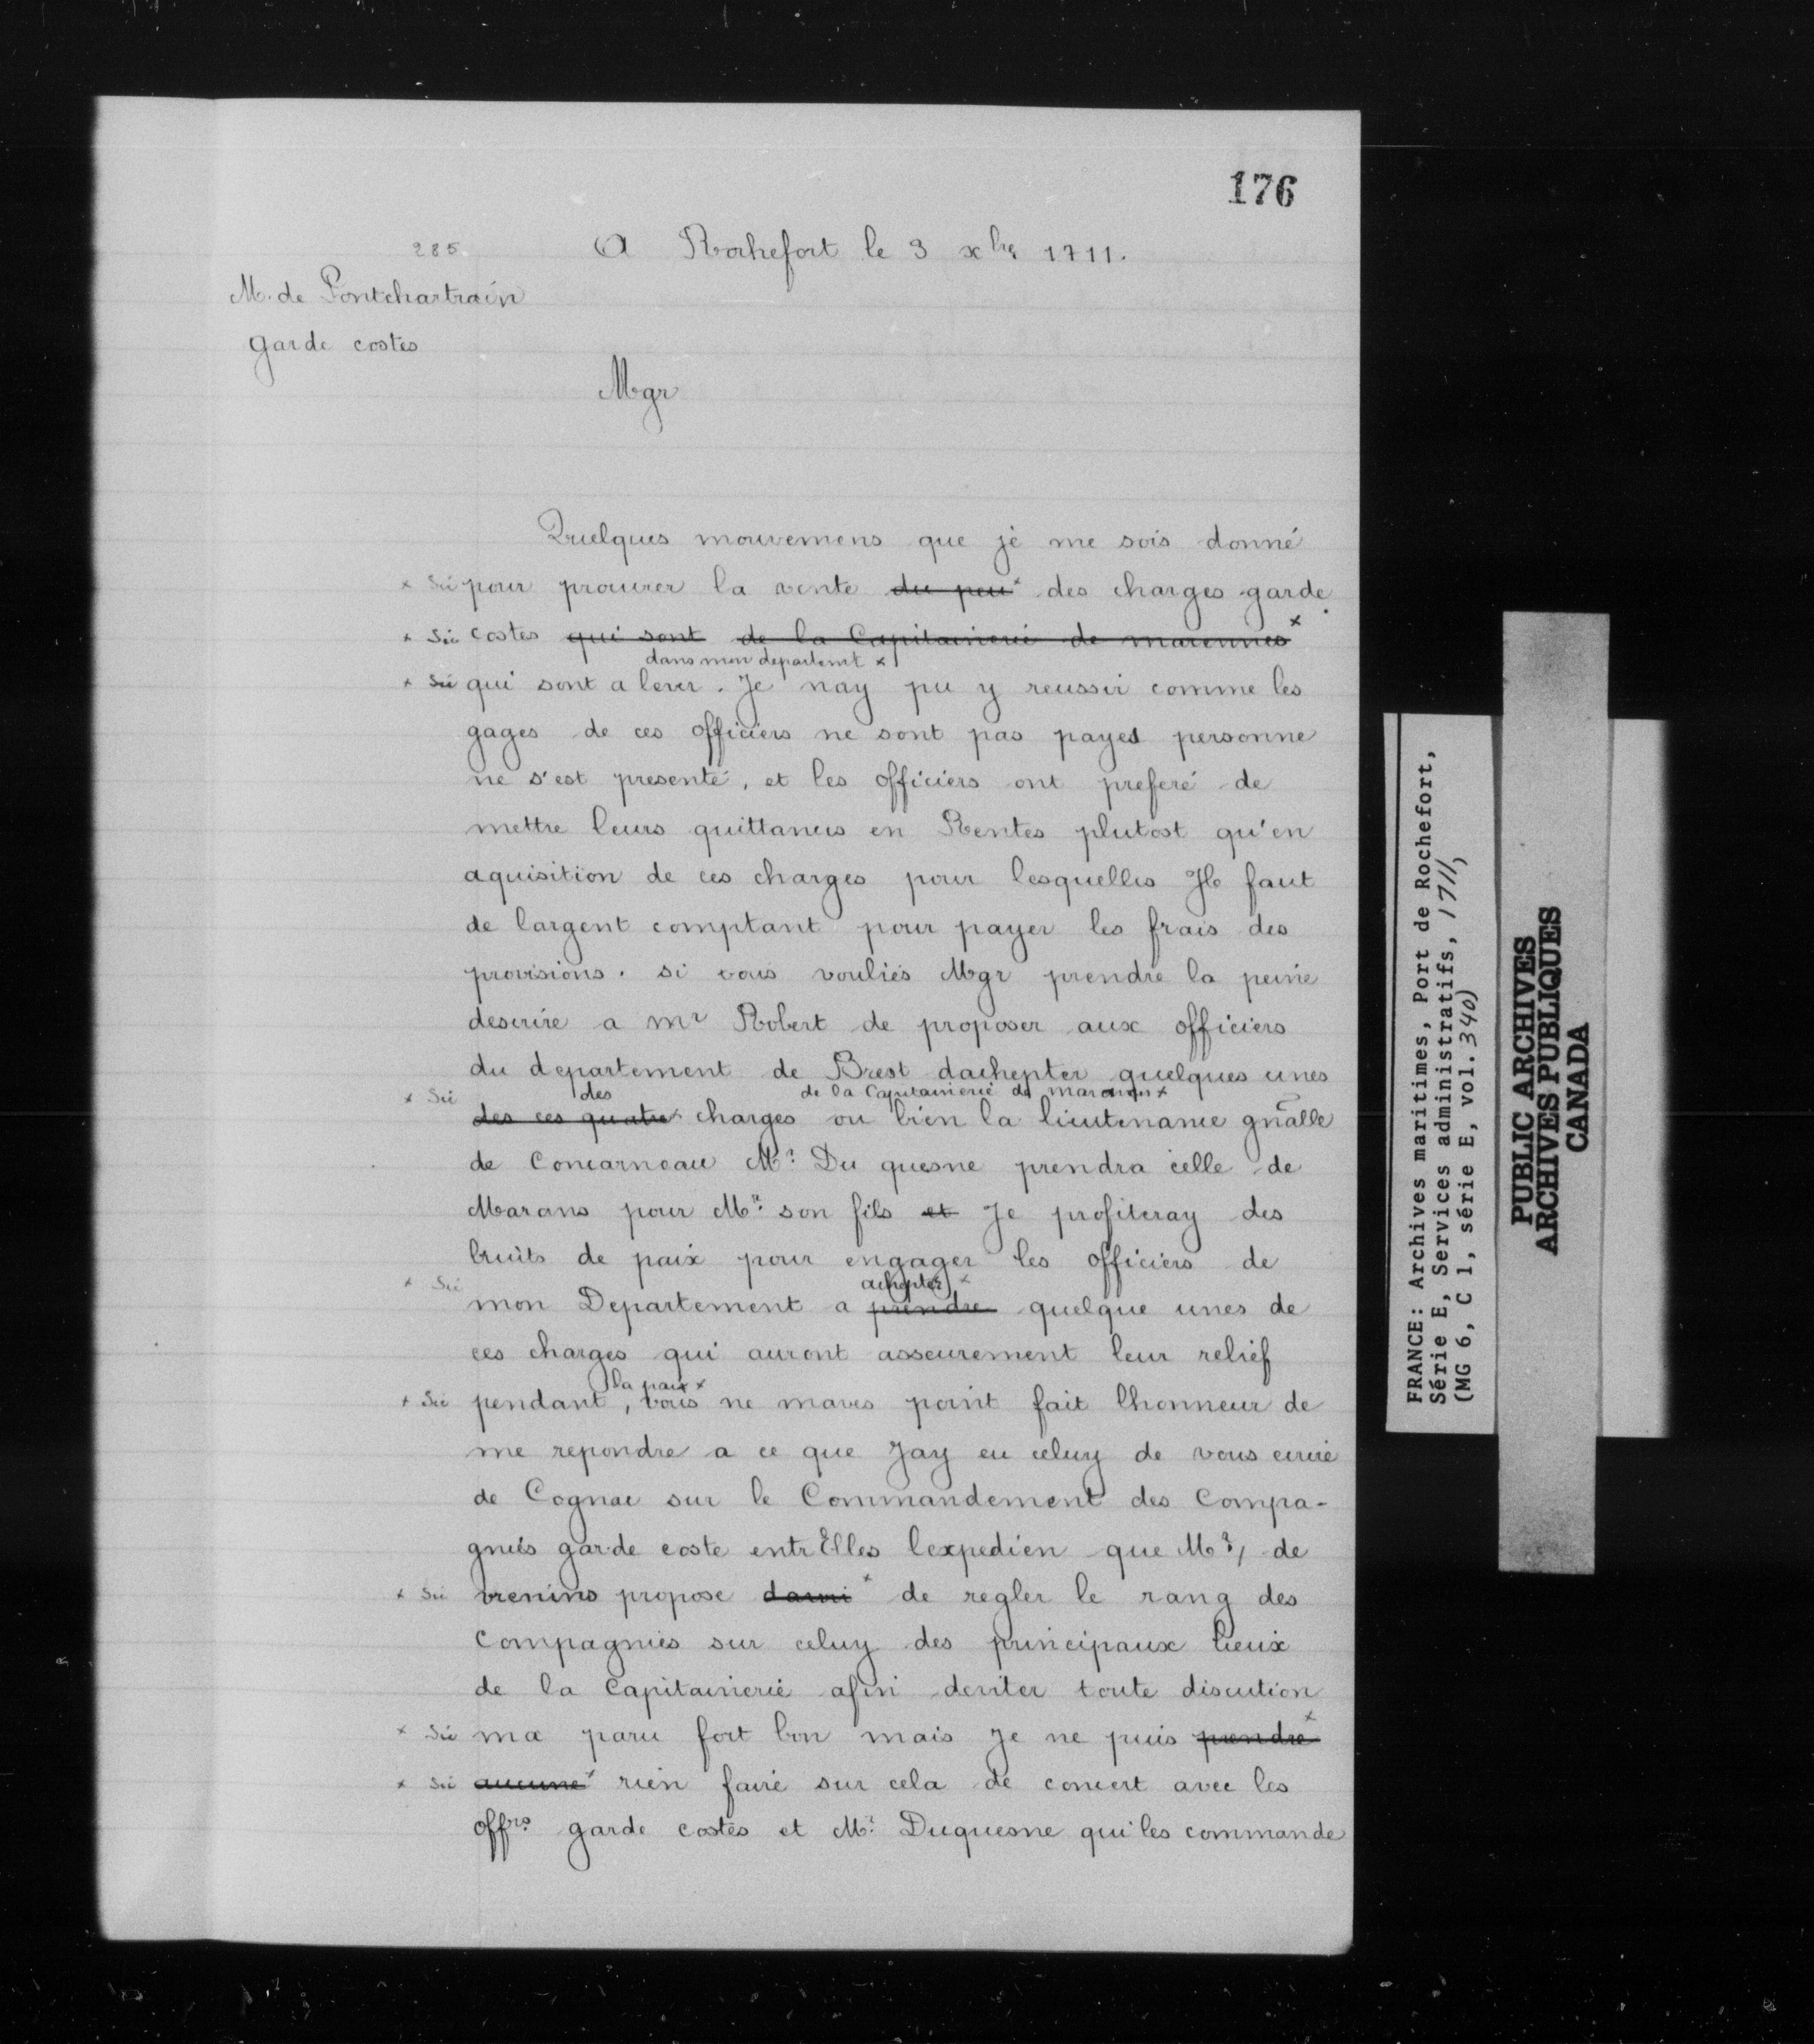 176
285. A Rochefort le 3 xbre 1711.
M. de Pontchartrain
garde costes
Mgr
Quelques mouvemens que je me sois donné
x Sic pour procurer la vente du peu x des charges garde
x Sic costes qui sont de la Capitainerie de marennes x
dans mon departemt x
x Sic qui sont a lever. Je nay pu y reussir comme les
gages de ces officiers ne sont pas payes personne
ne s'est presenté, et les officiers ont preferé de
mettre leurs quittances en Rentes plutost qu'en
aquisition de ces charges pour lesquelles Il faut
de largent comptant pour payer les frais des
provisions. si vous vouliés Mgr prendre la peine
descrire a mr Robert de proposer aux officiers
du departement de Brest dachepter quelques unes
des de la Capitainerie de marans x
x Sic des ces quatre x charges ou bien la lieutenance gnalle
de Concarneau Mr Du quesne prendra celle de
Marans pour Mr son fils et Je profiteray des
bruits de paix pour engager les officiers de
achepter x
x Sic mon Departement a prendre quelque unes de
ces charges qui auront asseurement leur relief
la paix x
x Sic pendant, vous ne maves point fait lhonneur de
me repondre a ce que Jay eu celuy de vous ecrire
de Cognac sur le Commandement des Compa-
gnies garde coste entr Elles lexpedien que Mr, de
x Sic vrenins propose x de regler le rang des
Compagnies sur celuy des principaux lieux
de la Capitainerie afin deviter toute discution
x Sic ma paru fort bon mais Je ne puis prendre x
x Sic aucune x rien faire sur cela de concert avec les
offrs garde costes et Mr Duquesne qui les commande
FRANCE: Archives maritimes, Port de Rochefort,
Série E, Services administratifs, 1711,
(MG 6, C 1, série E, vol. 340)
PUBLIC ARCHIVES
ARCHIVES PUBLIQUES
CANADA